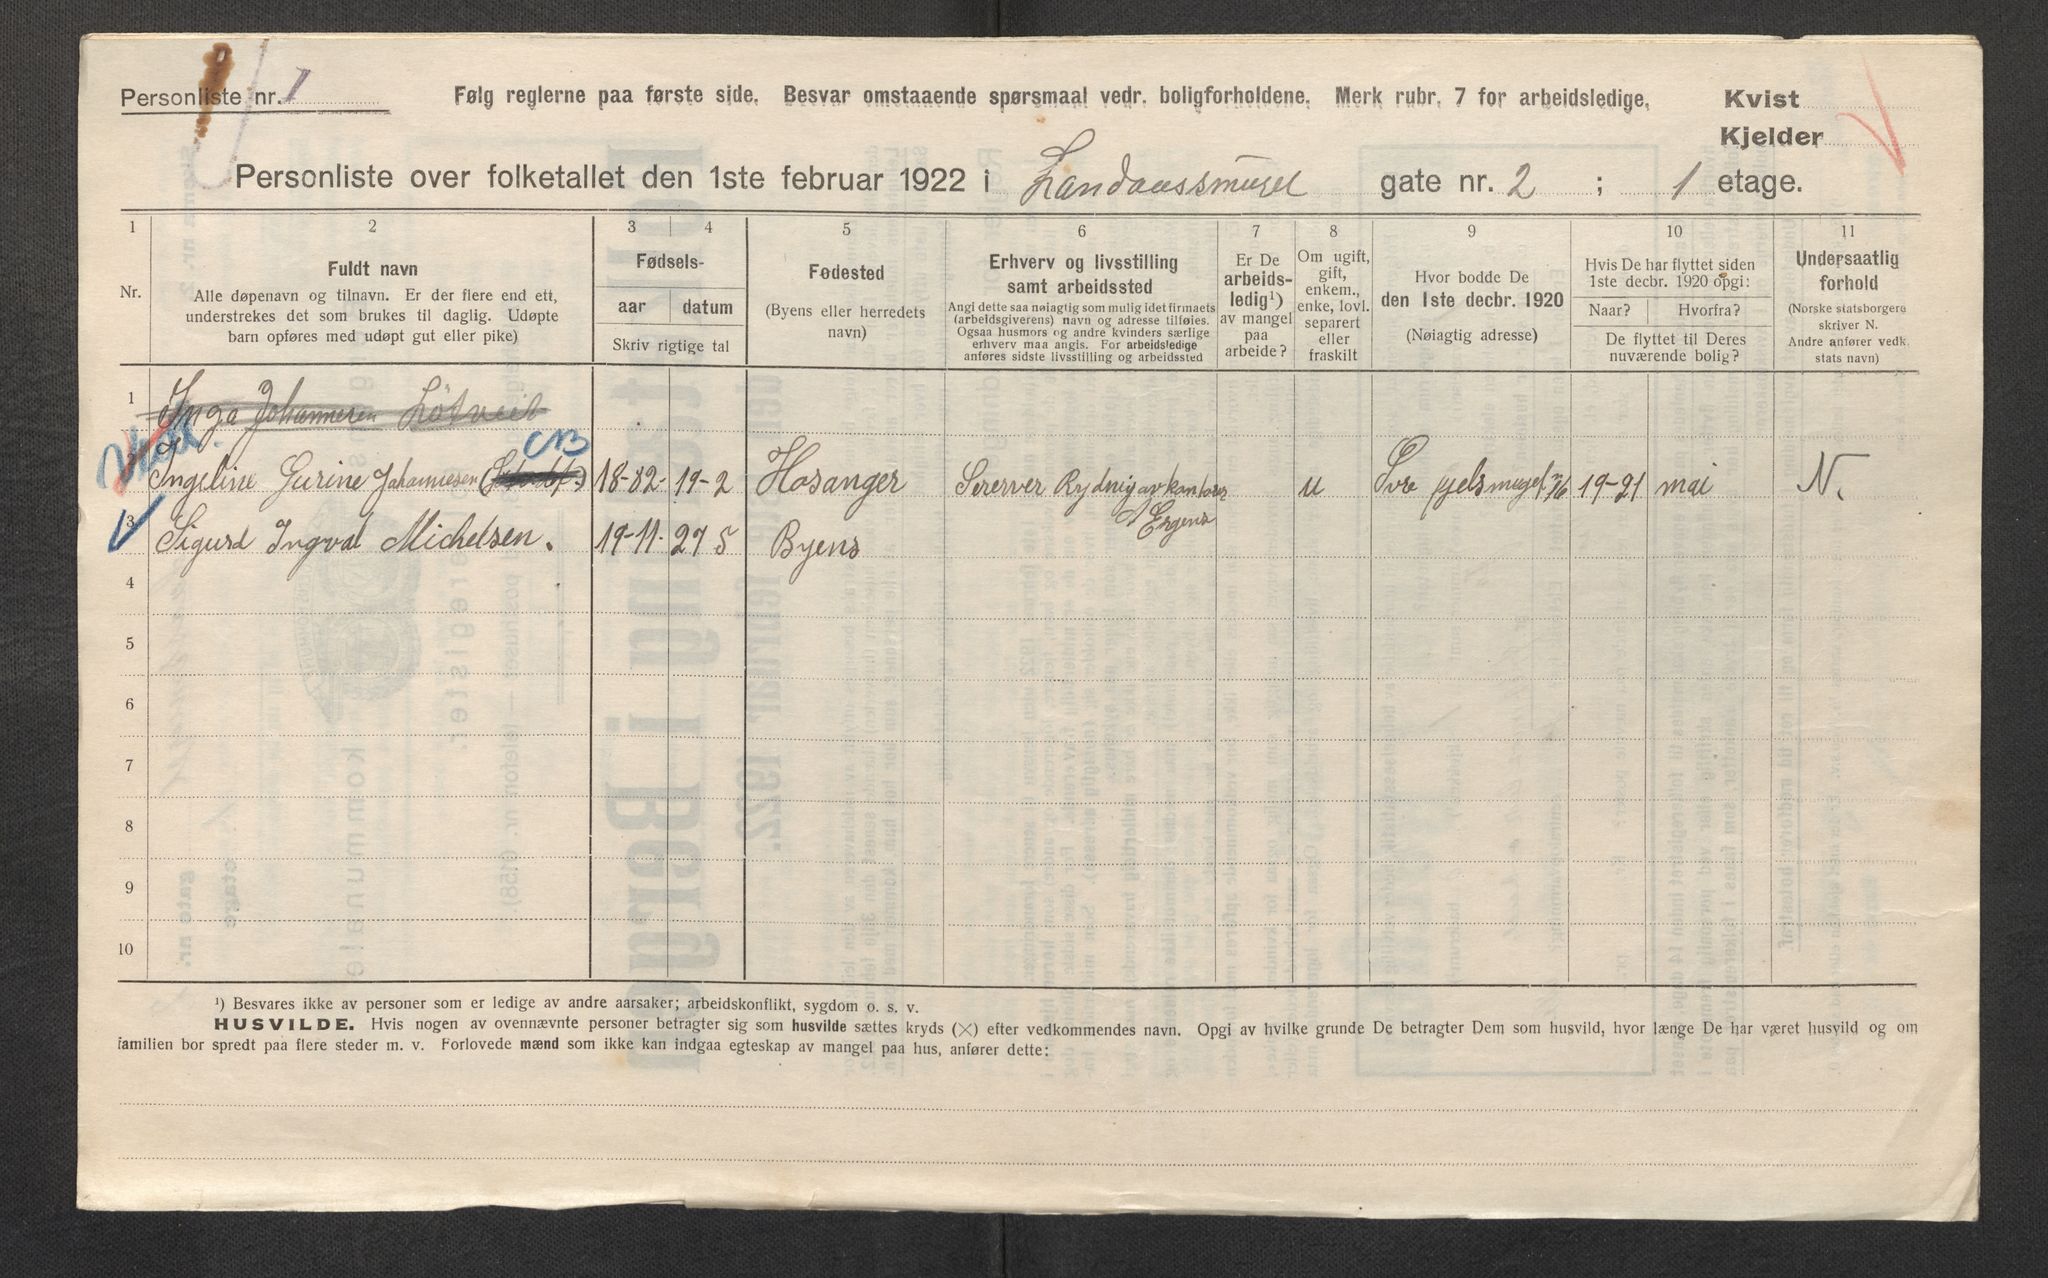 Personliste nr. 1
Følg reglerne paa første side. Besvar omstaaende spørsmaal vedr. boligforholdene. Merk rubr. 7 for arbeidsledige.
Kvist
Kjelder
Personliste over folketallet den 1ste februar 1922 i Landaassmuget gate nr. 2 ; 1 etage.
1 2 3 4 5 6 7 8 9 10 11
Nr.
Fuldt navn
Alle døpenavn og tilnavn. Er der flere end ett,
understrekes det som brukes til daglig. Udøpte
barn opføres med udøpt gut eller pike)
Fødsels-
aar datum
Skriv rigtige tal
Fødested
(Byens eller herredets
navn)
Erhverv og livsstilling
samt arbeidssted
Angi dette saa nøiagtig som mulig idet firmaets
(arbeidsgiverens) navn og adresse tilføies.
Ogsaa husmors og andre kvinders særlige
erhverv maa angis. For arbeidsledige
anføres sidste livsstilling og arbeidssted
Er De
arbeids-
ledig¹)
av mangel
paa
arbeide?
Om ugift,
gift,
enkem.,
enke, lovl.
separert
eller
fraskilt
Hvor bodde De
den 1ste decbr. 1920
(Nøiagtig adresse)
Hvis De har flyttet siden
1ste decbr. 1920 opgi:
Naar? Hvorfra?
De flyttet til Deres
nuværende bolig?
Undersaatlig
forhold
(Norske statsborgere
skriver N.
Andre anfører vedk.
stats navn)
1 Inga Johannesen Løtveit
NB
Ingeline Gurine Johannesen 18-82- 19-2 Hosanger Rydnig av kontorer u 19-21 mai N.
3 Sigurd Ingval Michelsen. 19-11. 27 5 Byens
4
5
6
7
8
9
10
¹) Besvares ikke av personer som er ledige av andre aarsaker; arbeidskonflikt, sygdom o. s. v.
HUSVILDE. Hvis nogen av ovennævnte personer betragter sig som husvilde sættes kryds (×) efter vedkommendes navn. Opgi av hvilke grunde De betragter Dem som husvild, hvor længe De har været husvild og om
familien bor spredt paa flere steder m. v. Forlovede mænd som ikke kan indgaa egteskap av mangel paa hus, anfører dette: